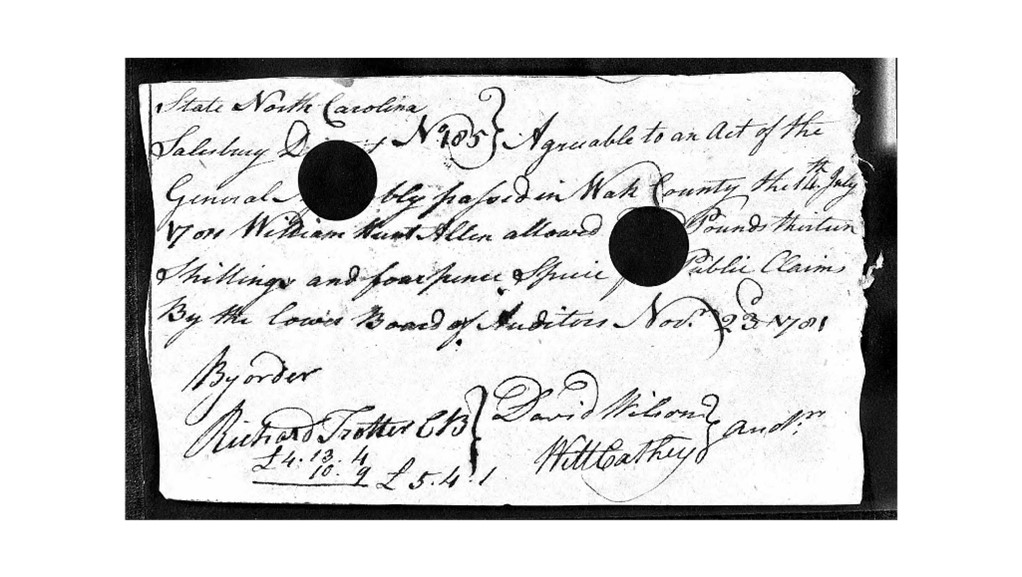 State North Carolina
Salisbury D t No. 185 } Agreeable to an Act of the
General bly passed in Wak County the 14th July
1781 William Hunt Allen allowed Pounds thirteen
Shillings and four pence Specie Public Claim
By the Lower Board of Auditors Novr. 23d 1781
By order
Richard Trotter CB } David Wilson } Audrs.
Will Cathey
£4.13.4
10.9
£5.4.1